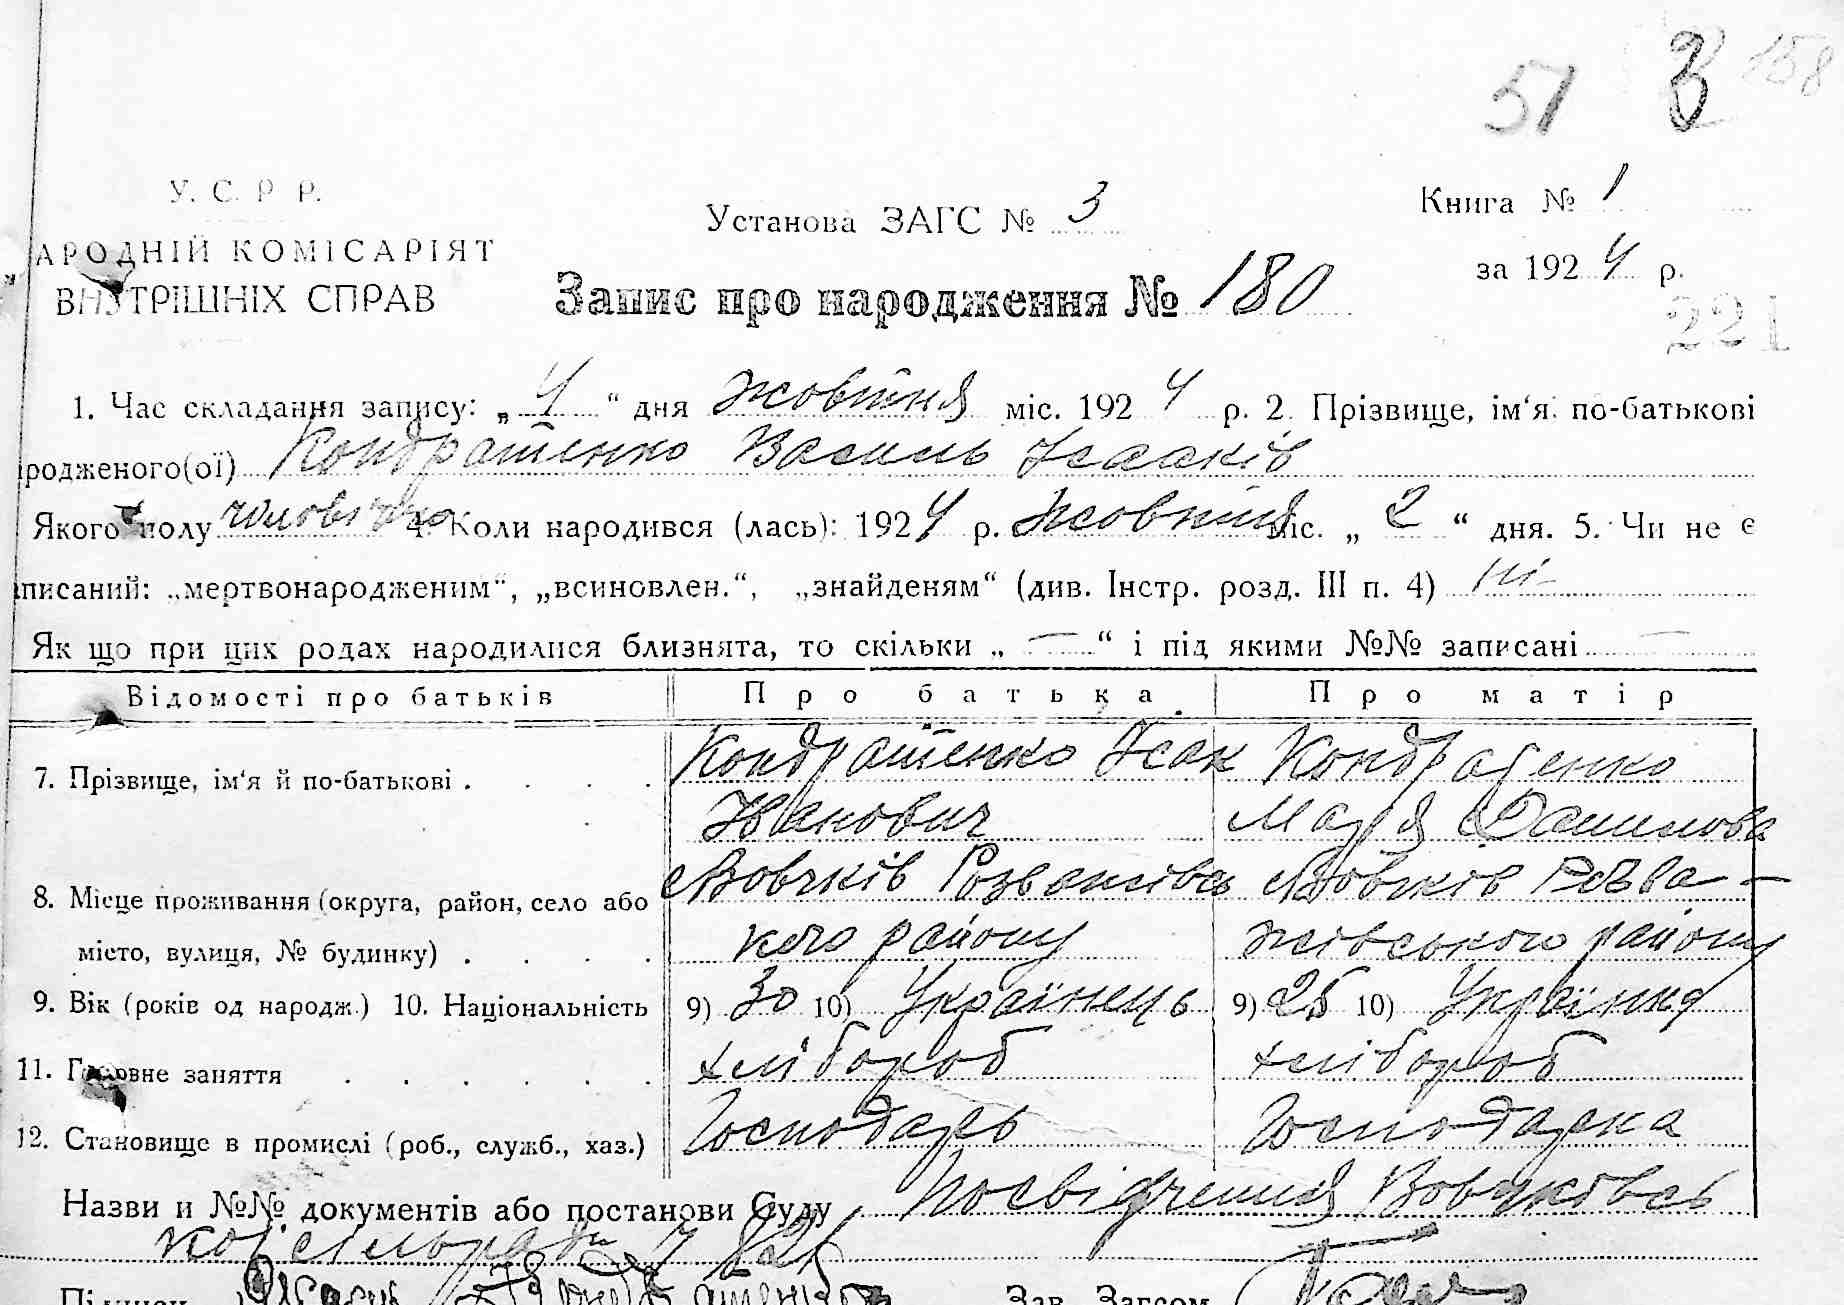 51 3 158
У. С. Р Р.
Установа ЗАГС № 3
Книга № 1
АРОДНІЙ КОМІСАРІЯТ
за 1924 р.
ВНУТРІШНІХ СПРАВ
Запис про народження № 180
221
1. Час складання запису: „4“ дня жовтня міс. 1924 р. 2. Прізвище, ім‘я по-батькові
родженого(ої) Кондратенко Василь Ісааків
Якого полу чоловічого 4. Коли народився (лась): 1924 р. жовтня міс. „2“ дня. 5. Чи не є
писаний: „мертвонародженим“, „всиновлен.“, „знайденям“ (див. Інстр. розд. III п. 4) ні
Як що при цих родах народилися близнята, то скільки „—“ і під якими №№ записані —
Відомості про батьків Про батька Про матір
7. Прізвище, ім‘я й по-батькові . Кондратенко Ісак Кондратенко
Іванович Марія Данилова
8. Місце проживання (округа, район, село або Вовчків Розважівсь Вовчків Розва-
місто, вулиця, № будинку) . кого району жівського району
9. Вік (років од народж.) 10. Національність 9) 30 10) Українець 9) 25 10) Україн
11. Головне заняття хлібороб хлібороб
12. Становище в промислі (роб., служб., хаз.) Господарь Господарка
Назви и №№ документів або постанови Суду Посвідчення Вовчківсь
кої сільради
Підписи Зав. Загсом